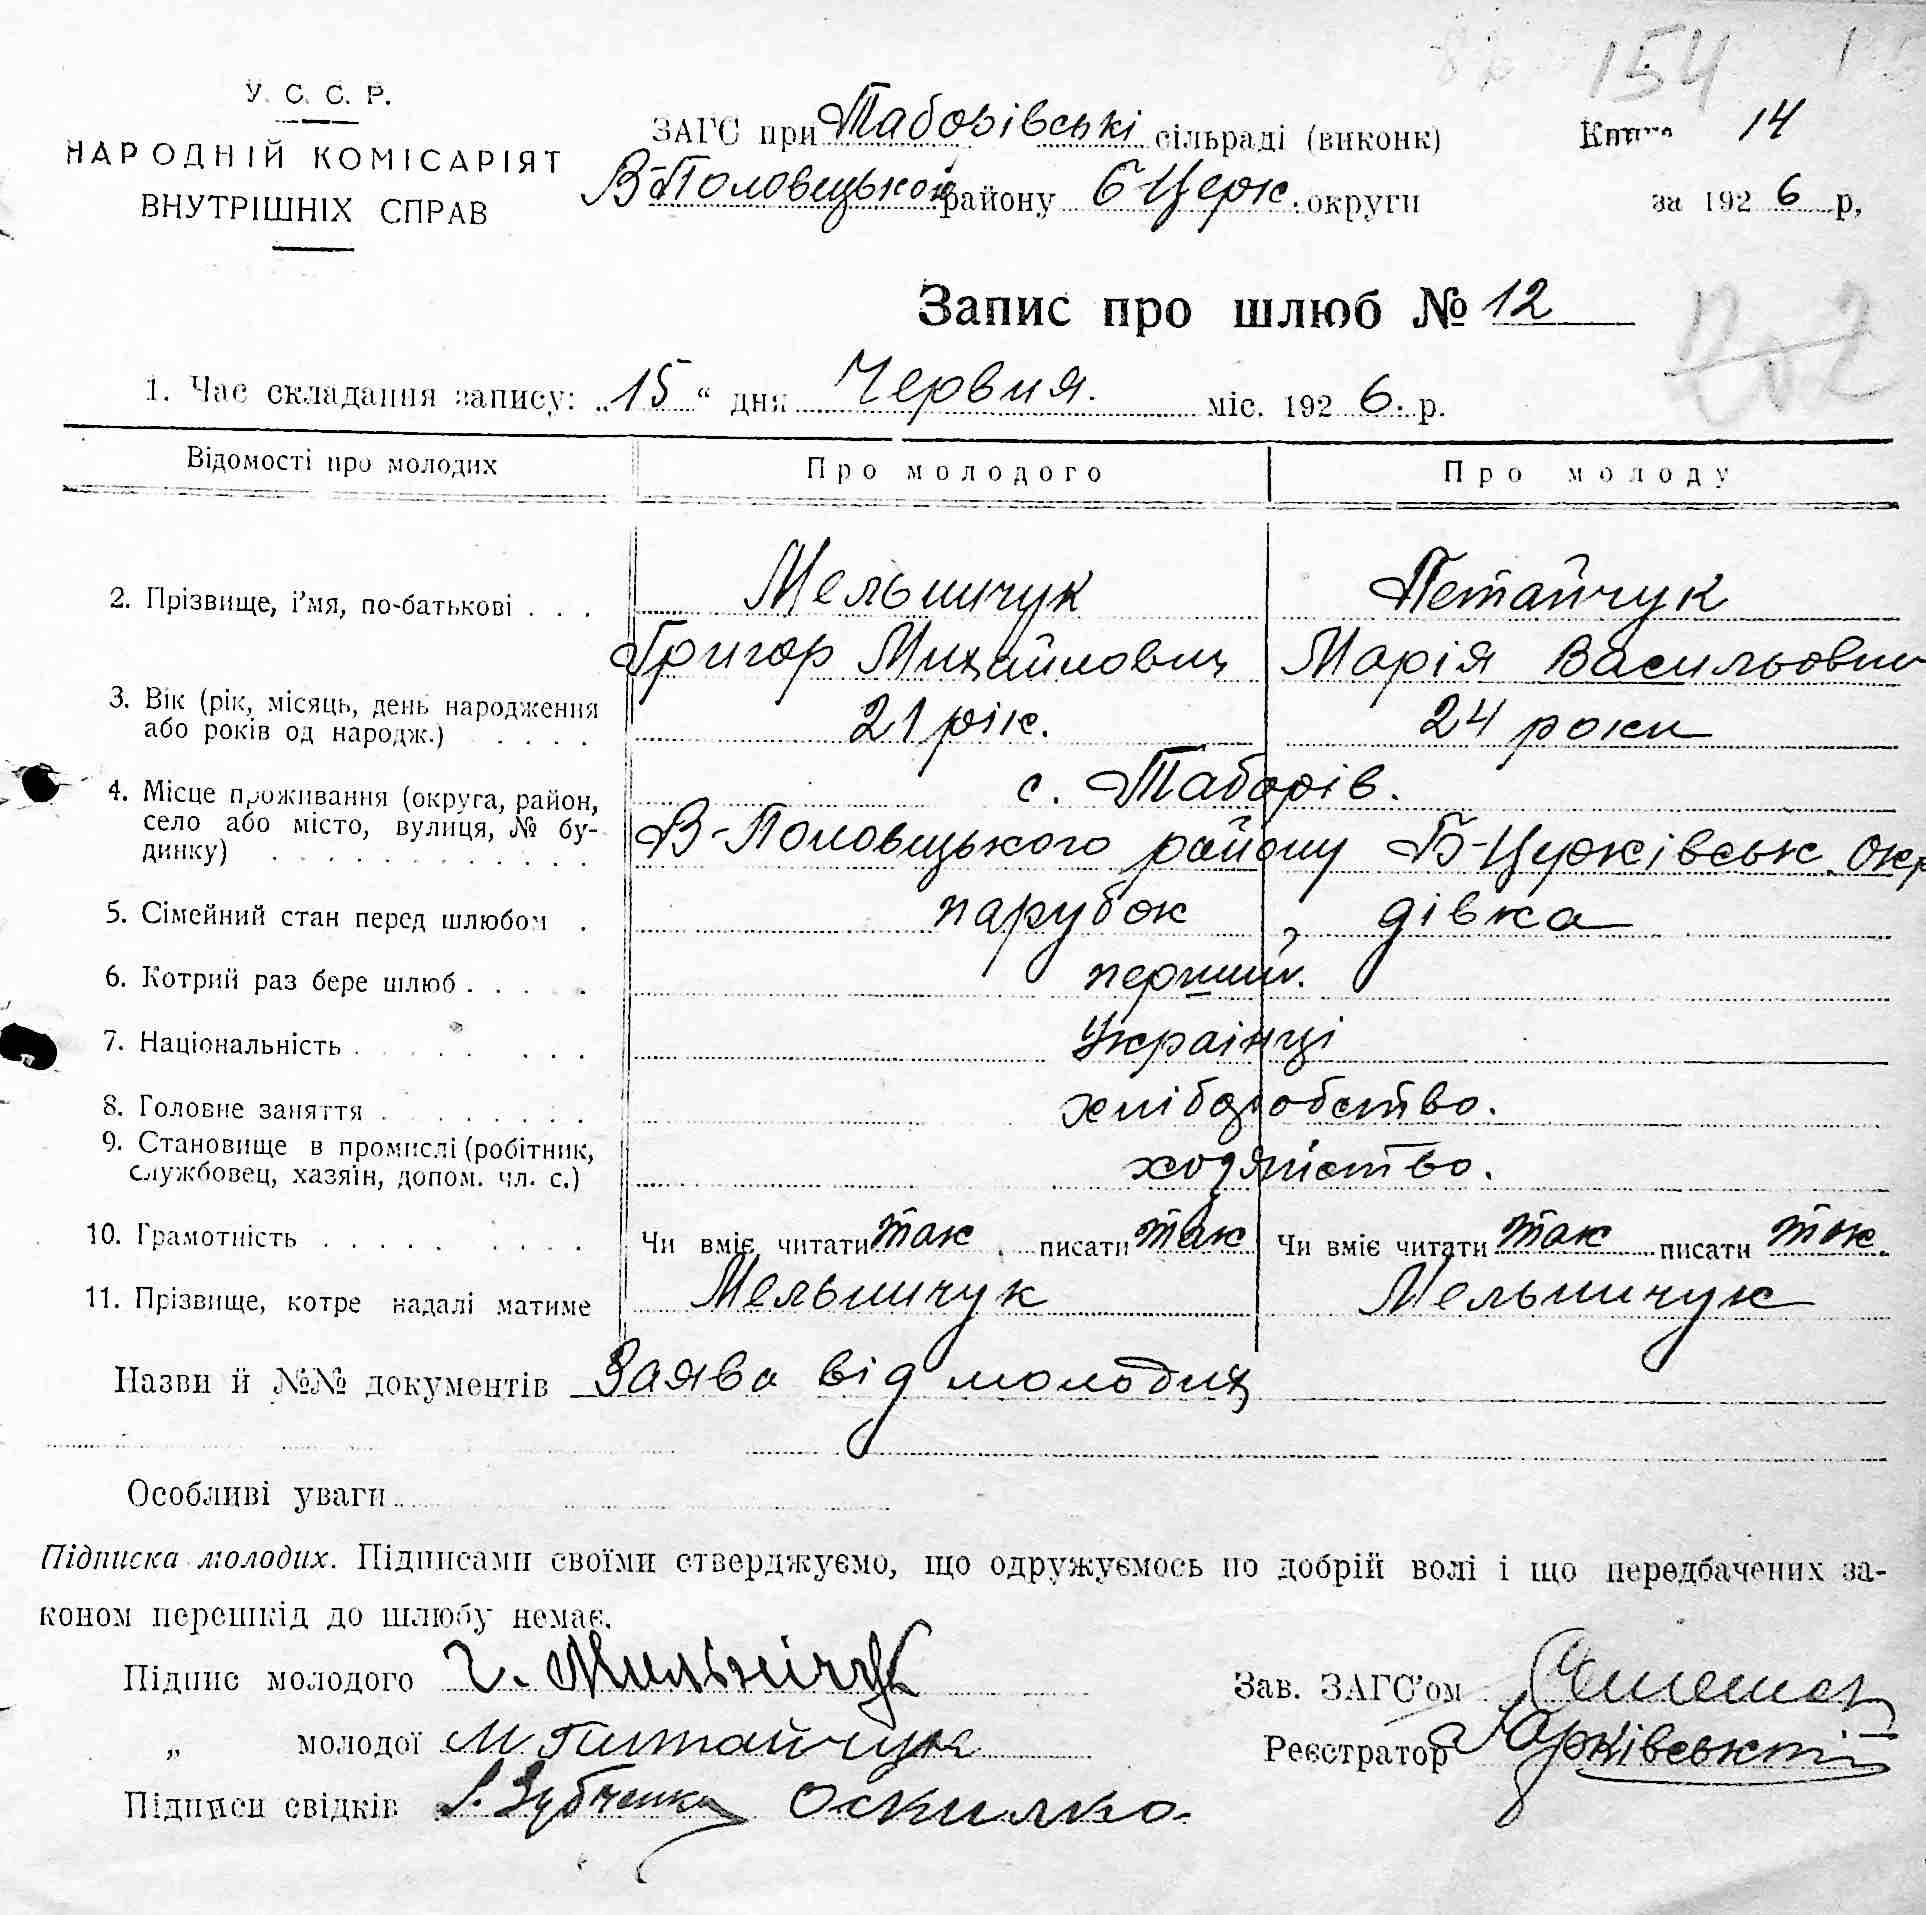 154
У. С. С. Р.
НАРОДНІЙ КОМІСАРІЯТ
ВНУТРІШНІХ СПРАВ
ЗАГС при Таборівські сільраді (виконк)
Книга 14
В-Половецького району Б-Церк. округи
за 1926 р,
Запис про шлюб № 12
1. Час складання запису: „15“ дня Червня. міс. 1926. р.
Відомості про молодих
Про молодого
Про молоду
2. Прізвище, і'мя, по-батькові . . .
Мельничук
Григор Михайлович
Петайчук
Марія Васильовни
3. Вік (рік, місяць, день народження
або років од народж.) . . . .
21 рік.
24 роки
4. Місце проживання (округа, район,
село або місто, вулиця, № бу-
динку) . . . . . . . . . . . .
с. Таборів.
В-Половецького району Б-Церківськ. Окр
5. Сімейний стан перед шлюбом .
парубок , дівка
6. Котрий раз бере шлюб . . . .
перший.
7. Національність . . . . . . .
Украінці
8. Головне заняття . . . . . . . .
хліборобство.
9. Становище в промислі (робітник,
службовец, хазяїн, допом. чл. с.)
хозяйство.
10. Грамотність . . . . . . . . .
Чи вміє читати так, писати так
Чи вміє читати так писати так.
11. Прізвище, котре надалі матиме
Мельничук
Мельничук
Назви й №№ документів Заява від молодих
Особливі уваги
Підписка молодих. Підписами своїми стверджуємо, що одружуємось по добрій волі і що передбачених за-
коном перешкід до шлюбу немає.
Підпис молодого Г. Мильнічук
Зав. ЗАГС'ом
„ молодої М Питайчук
Реєстратор Харківський
Підписи свідків І. Зубченка Оскилко